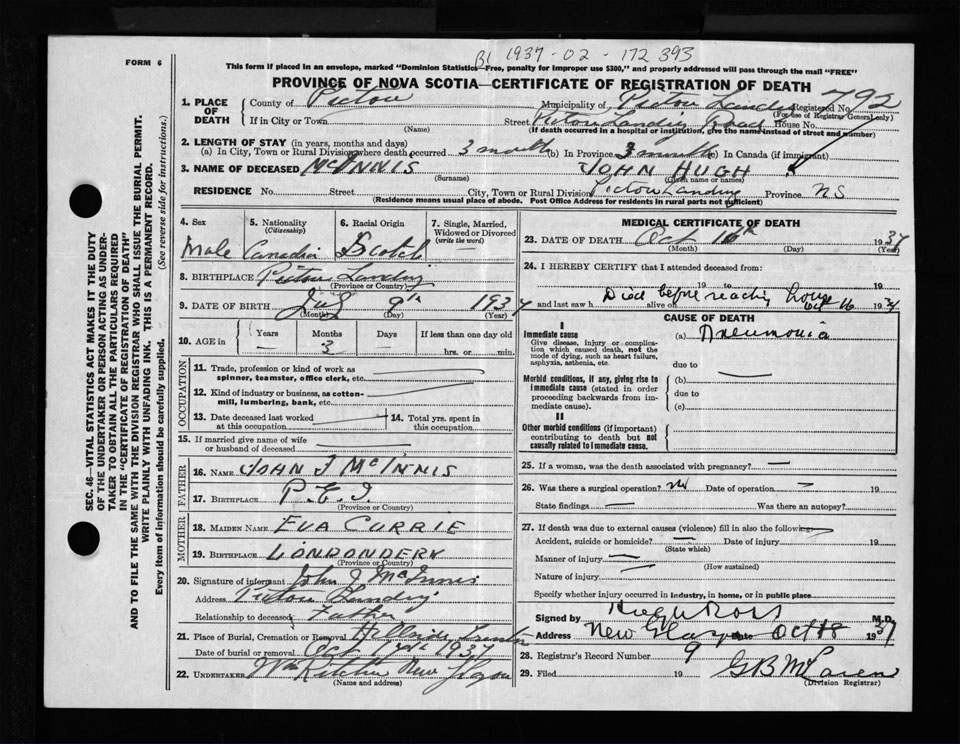 FORM 6
BL 1937-02-172393
This form if placed in an envelope, marked "Dominion Statistics—Free, penalty for improper use $300," and properly addressed will pass through the mail "FREE"
PROVINCE OF NOVA SCOTIA—CERTIFICATE OF REGISTRATION OF DEATH
SEC. 46—VITAL STATISTICS ACT MAKES IT THE DUTY
OF THE UNDERTAKER OR PERSON ACTING AS UNDER-
TAKER TO OBTAIN ALL THE PARTICULARS REQUIRED
IN THE "CERTIFICATE OF REGISTRATION OF DEATH"
AND TO FILE THE SAME WITH THE DIVISION REGISTRAR WHO SHALL ISSUE THE BURIAL PERMIT.
WRITE PLAINLY WITH UNFADING INK. THIS IS A PERMANENT RECORD.
Every item of information should be carefully supplied. (See reverse side for instructions.)
1. PLACE OF DEATH County of Pictou Municipality of Pictou Landing Registered No. 792
(For use of Registrar General only)
If in City or Town (Name) Street Pictou Landing Road House No.
(If death occurred in a hospital or institution, give the name instead of street and number)
2. LENGTH OF STAY (in years, months and days)
(a) In City, Town or Rural Division where death occurred 3 months (b) In Province 3 months (c) In Canada (if immigrant)
3. NAME OF DECEASED McINNIS JOHN HUGH
(Surname) (Given name or names)
RESIDENCE No. Street City, Town or Rural Division Pictou Landing Province NS
(Residence means usual place of abode. Post Office Address for residents in rural parts not sufficient)
4. Sex 5. Nationality (Citizenship) 6. Racial Origin 7. Single, Married, Widowed or Divorced (write the word)
Male Canadian Scotch
8. BIRTHPLACE Pictou Landing
(Province or Country)
9. DATE OF BIRTH July 9th 1937
(Month) (Day) (Year)
10. AGE in Years Months Days If less than one day old
— 3 hrs. or min.
OCCUPATION
11. Trade, profession or kind of work as
spinner, teamster, office clerk, etc.
12. Kind of industry or business, as cotton-
mill, lumbering, bank, etc.
13. Date deceased last worked at this occupation 14. Total yrs. spent in this occupation
15. If married give name of wife
or husband of deceased
FATHER
16. NAME JOHN J McINNIS
17. BIRTHPLACE P.E.I.
(Province or Country)
MOTHER
18. MAIDEN NAME EVA CURRIE
19. BIRTHPLACE LONDONDERY
(Province or Country)
20. Signature of informant John J McInnis
Address Pictou Landing
Relationship to deceased Father
21. Place of Burial, Cremation or Removal Trenton
Date of burial or removal Oct 17th 1937
22. UNDERTAKER Wm Ritchie New Glasgow
(Name and address)
MEDICAL CERTIFICATE OF DEATH
23. DATE OF DEATH Oct 16th 1937
(Month) (Day) (Year)
24. I HEREBY CERTIFY that I attended deceased from:
19 to 19
and last saw h alive on Died before reaching house Oct 16 1937
CAUSE OF DEATH
I
Immediate cause (a) Pneumonia
Give disease, injury or complica-
tion which caused death, not the
mode of dying, such as heart failure,
asphyxia, asthenia, etc.
due to
Morbid conditions, if any, giving rise to
immediate cause (stated in order
proceeding backwards from im-
mediate cause).
(b)
due to
(c)
II
Other morbid conditions (if important)
contributing to death but not
causally related to immediate cause.
25. If a woman, was the death associated with pregnancy? —
26. Was there a surgical operation? no Date of operation — 19
State findings Was there an autopsy?
27. If death was due to external causes (violence) fill in also the following:
Accident, suicide or homicide? — Date of injury 19
(State which)
Manner of injury —
(How sustained)
Nature of injury —
Specify whether injury occurred in industry, in home, or in public place
Signed by Hugh Ross M.D.
Address New Glasgow Date Oct 18 1937
28. Registrar's Record Number 9
29. Filed 19 G B McLaren
(Division Registrar)